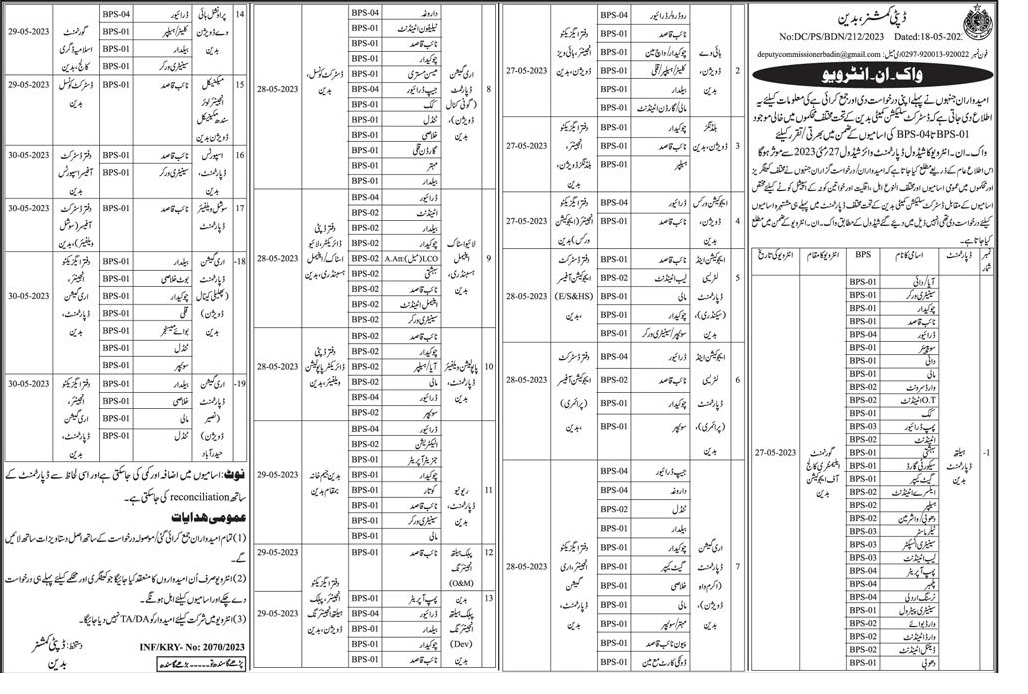 ڈپٹی کمشنر، بدین
No:DC/PS/BDN/212/2023 Dated:18-05-202
فون نمبر 0297-920013-920022 ای میل: deputycommissionerbadin@gmail.com
واک۔ان۔انٹرویو
امیدواران جنہوں نے پہلے اپنی درخواست دی اور جمع کرائی ہے کی معلومات کیلئے یہ
اطلاع دی جاتی ہے کہ ڈسٹرکٹ سلیکشن کمیٹی بدین کے تحت مختلف محکموں میں خالی موجود
BPS-01 تا BPS-04 کی اسامیوں کے ضمن میں بھرتی/تقرر کیلئے
واک۔ان۔انٹرویو کا شیڈول ڈپارٹمنٹ وائز شیڈول 27 مئی 2023 سے موثر ہوگا
اس اطلاع عام کے ذریعے مطلع کیا جاتا ہے کہ امیدواران/درخواست گزاران جنہوں نے مختلف کیٹگریز
اور محکموں میں عمومی اسامیوں اور مختلف النوع اہل، اقلیت اور خواتین کوٹہ کے آپشل کوٹے کیلئے مختص
اسامیوں کے مقابل ڈسٹرکٹ سلیکشن کمیٹی بدین کے تحت مختلف ڈپارٹمنٹ میں پہلے ہی مشتہرہ اسامیوں
کیلئے درخواست دی تھی انہیں ذیل میں دیے گئے شیڈول کے مطابق واک۔ان۔انٹرویو کے ضمن میں مطلع
کیا جاتا ہے۔
نمبر شمار ڈپارٹمنٹ اسامی کا نام BPS انٹرویو کا مقام انٹرویو کی تاریخ
1- ہیلتھ ڈپارٹمنٹ بدین
گورنمنٹ ایلیمنٹری کالج آف ایجوکیشن بدین 27-05-2023
آیا/دائی BPS-01
سینیٹری ورکر BPS-01
چوکیدار BPS-01
نائب قاصد BPS-01
ڈرائیور BPS-04
سوئپر BPS-01
دائی BPS-01
مالی BPS-01
وارڈ سرونٹ BPS-02
O.T اٹینڈنٹ BPS-02
کک BPS-01
پمپ ڈرائیور BPS-03
اٹینڈنٹ BPS-02
بہشتی BPS-01
سیکورٹی گارڈ BPS-01
گیٹ کیپر BPS-01
ایکسرے اٹینڈنٹ BPS-02
ہیلپر BPS-02
دھوبی/واٹر مین BPS-02
ٹیلر ماسٹر BPS-03
سینیٹری انسپکٹر BPS-03
لیب اٹینڈنٹ BPS-03
پمپ آپریٹر BPS-04
پلمبر BPS-04
نرسنگ اردلی BPS-04
سینیٹری پیٹرول BPS-01
وارڈ بوائے BPS-02
وارڈ اٹینڈنٹ BPS-02
ڈینٹل اٹینڈنٹ BPS-02
دھوبی BPS-01
2 ہائی وے ڈویژن، بدین
دفتر ایگزیکٹو انجینئر، ہائی ویز ڈویژن، بدین 27-05-2023
روڈ رولر ڈرائیور BPS-04
نائب قاصد BPS-01
چوکیدار/واچ مین BPS-01
کلینر/ہیلپر/قلی BPS-01
بیلدار BPS-01
مالی/گارڈن اٹینڈنٹ BPS-01
3 بلڈنگز ڈویژن، بدین
دفتر ایگزیکٹو انجینئر، بلڈنگز ڈویژن، بدین 27-05-2023
چوکیدار BPS-01
نائب قاصد BPS-01
ہیلپر BPS-01
4 ایجوکیشن ورکس ڈویژن، بدین
دفتر ایگزیکٹو انجینئر (ایجوکیشن ورکس) بدین 27-05-2023
ڈرائیور BPS-04
نائب قاصد BPS-01
5 ایجوکیشن اینڈ لٹریسی ڈپارٹمنٹ (سیکنڈری)، بدین
دفتر ڈسٹرکٹ ایجوکیشن آفیسر (E/S&HS)، بدین 28-05-2023
نائب قاصد BPS-01
لیب اٹینڈنٹ BPS-02
مالی BPS-01
چوکیدار BPS-01
سوئپر/سینیٹری ورکر BPS-01
6 ایجوکیشن اینڈ لٹریسی ڈپارٹمنٹ (پرائمری)، بدین
دفتر ڈسٹرکٹ ایجوکیشن آفیسر (پرائمری)، بدین 28-05-2023
ڈرائیور BPS-04
نائب قاصد BPS-02
چوکیدار BPS-02
سوئپر BPS-02
7 اری گیشن ڈپارٹمنٹ (اکرم واہ ڈویژن)، بدین
دفتر ایگزیکٹو انجینئر، اری گیشن 28-05-2023
جیپ ڈرائیور BPS-04
داروغہ BPS-04
ٹنڈل BPS-02
بیلدار BPS-01
چوکیدار BPS-01
گیٹ کیپر BPS-01
خلاصی BPS-01
مالی BPS-01
مہتر/سوئپر BPS-01
پیون نائب قاصد BPS-01
ڈونکی کارٹ مع مین BPS-01
8 اری گیشن ڈپارٹمنٹ (گونی کنال ڈویژن)، بدین
ڈسٹرکٹ کونسل، بدین 28-05-2023
داروغہ BPS-04
ٹیلیفون اٹینڈنٹ BPS-01
نائب قاصد BPS-01
چوکیدار BPS-01
میسن مستری
جیپ ڈرائیور BPS-04
کک BPS-01
ٹنڈل BPS-01
خلاصی BPS-01
گارڈن قلی BPS-01
مہتر BPS-01
بیلدار BPS-01
9 لائیو اسٹاک اینیمل ہسبنڈری، بدین
دفتر ڈپٹی ڈائریکٹر، لائیو اسٹاک/اینیمل ہسبنڈری، بدین 28-05-2023
ڈرائیور BPS-04
اٹینڈنٹ BPS-01
بیلدار BPS-01
چوکیدار BPS-02
LCO(میل):A.Att BPS-02
بہشتی BPS-02
نائب قاصد BPS-01
اینیمل اٹینڈنٹ BPS-01
سینیٹری ورکر BPS-02
10 پاپولیشن ویلفیئر ڈپارٹمنٹ، بدین
دفتر ڈپٹی ڈائریکٹر پاپولیشن ویلفیئر، بدین 28-05-2023
نائب قاصد BPS-02
چوکیدار BPS-02
آیا/ہیلپر BPS-02
مالی BPS-02
ڈرائیور BPS-04
سوئپر BPS-02
11 ریونیو ڈپارٹمنٹ، بدین
بدین جیم خانہ بمقام بدین 29-05-2023
ڈرائیور BPS-04
الیکٹریشن BPS-02
جنریٹر آپریٹر BPS-01
کوٹار BPS-01
نائب قاصد BPS-01
سینیٹری ورکر BPS-01
مالی BPS-01
12 پبلک ہیلتھ انجینئرنگ (O&M) بدین
نائب قاصد BPS-01 29-05-2023
دفتر ایگزیکٹو انجینئر، پبلک ہیلتھ انجینئرنگ ڈویژن، بدین
13 پبلک ہیلتھ انجینئرنگ (Dev) بدین 29-05-2023
پمپ آپریٹر BPS-01
ڈرائیور BPS-04
بیلدار BPS-01
چوکیدار BPS-01
نائب قاصد BPS-01
14 پراونشل ہائی وے ڈویژن بدین
گورنمنٹ اسلامیہ ڈگری کالج، بدین 29-05-2023
ڈرائیور BPS-04
کلینر/ہیلپر BPS-01
بیلدار BPS-01
سینیٹری ورکر BPS-01
15 میکینیکل انجینئر لوئر سندھ میکینیکل ڈویژن بدین
نائب قاصد BPS-01 ڈسٹرکٹ کونسل بدین 29-05-2023
16 اسپورٹس ڈپارٹمنٹ، بدین
نائب قاصد BPS-01
سینیٹری ورکر BPS-01
دفتر ڈسٹرکٹ آفیسر اسپورٹس بدین 30-05-2023
17 سوشل ویلفیئر ڈپارٹمنٹ
نائب قاصد BPS-01
دفتر ڈسٹرکٹ آفیسر (سوشل ویلفیئر)، بدین 30-05-2023
18- اری گیشن (پھلیلی کینال ڈویژن) بدین
دفتر ایگزیکٹو انجینئر، اری گیشن ڈپارٹمنٹ، بدین 30-05-2023
بیلدار BPS-01
بوٹ خلاصی BPS-01
چوکیدار BPS-01
قلی BPS-01
بوائے میسنجر BPS-01
ٹنڈل BPS-01
چوکیدار BPS-01
سوئپر BPS-01
19- اری گیشن ڈپارٹمنٹ (نصیر ڈویژن) حیدرآباد
دفتر ایگزیکٹو انجینئر، اری گیشن ڈپارٹمنٹ، بدین 30-05-2023
بیلدار BPS-01
خلاصی BPS-01
مالی BPS-01
ٹنڈل BPS-01
نوٹ: اسامیوں میں اضافہ اور کمی کی جاسکتی ہے اور اسی لحاظ سے ڈپارٹمنٹ کے
ساتھ reconciliation کی جاسکتی ہے۔
عمومی ہدایات
(1) تمام امیدواران جمع کرائی گئی/موصولہ درخواست کے ساتھ اصل دستاویزات ساتھ لائیں
گے۔
(2) انٹرویو صرف اُن امیدواروں کا منعقد کیا جائیگا جو کیٹگری اور محکمے کیلئے پہلے ہی درخواست
دے چکے اور اسامیوں کیلئے اہل ہونگے۔
(3) انٹرویو میں شرکت کیلئے امیدوار کو TA/DA نہیں دیا جائیگا۔
دستخط: ڈپٹی کمشنر
بدین
INF/KRY- No: 2070/2023
پڑھے گا سندھ تو۔۔۔۔۔ بڑھے گا سندھ